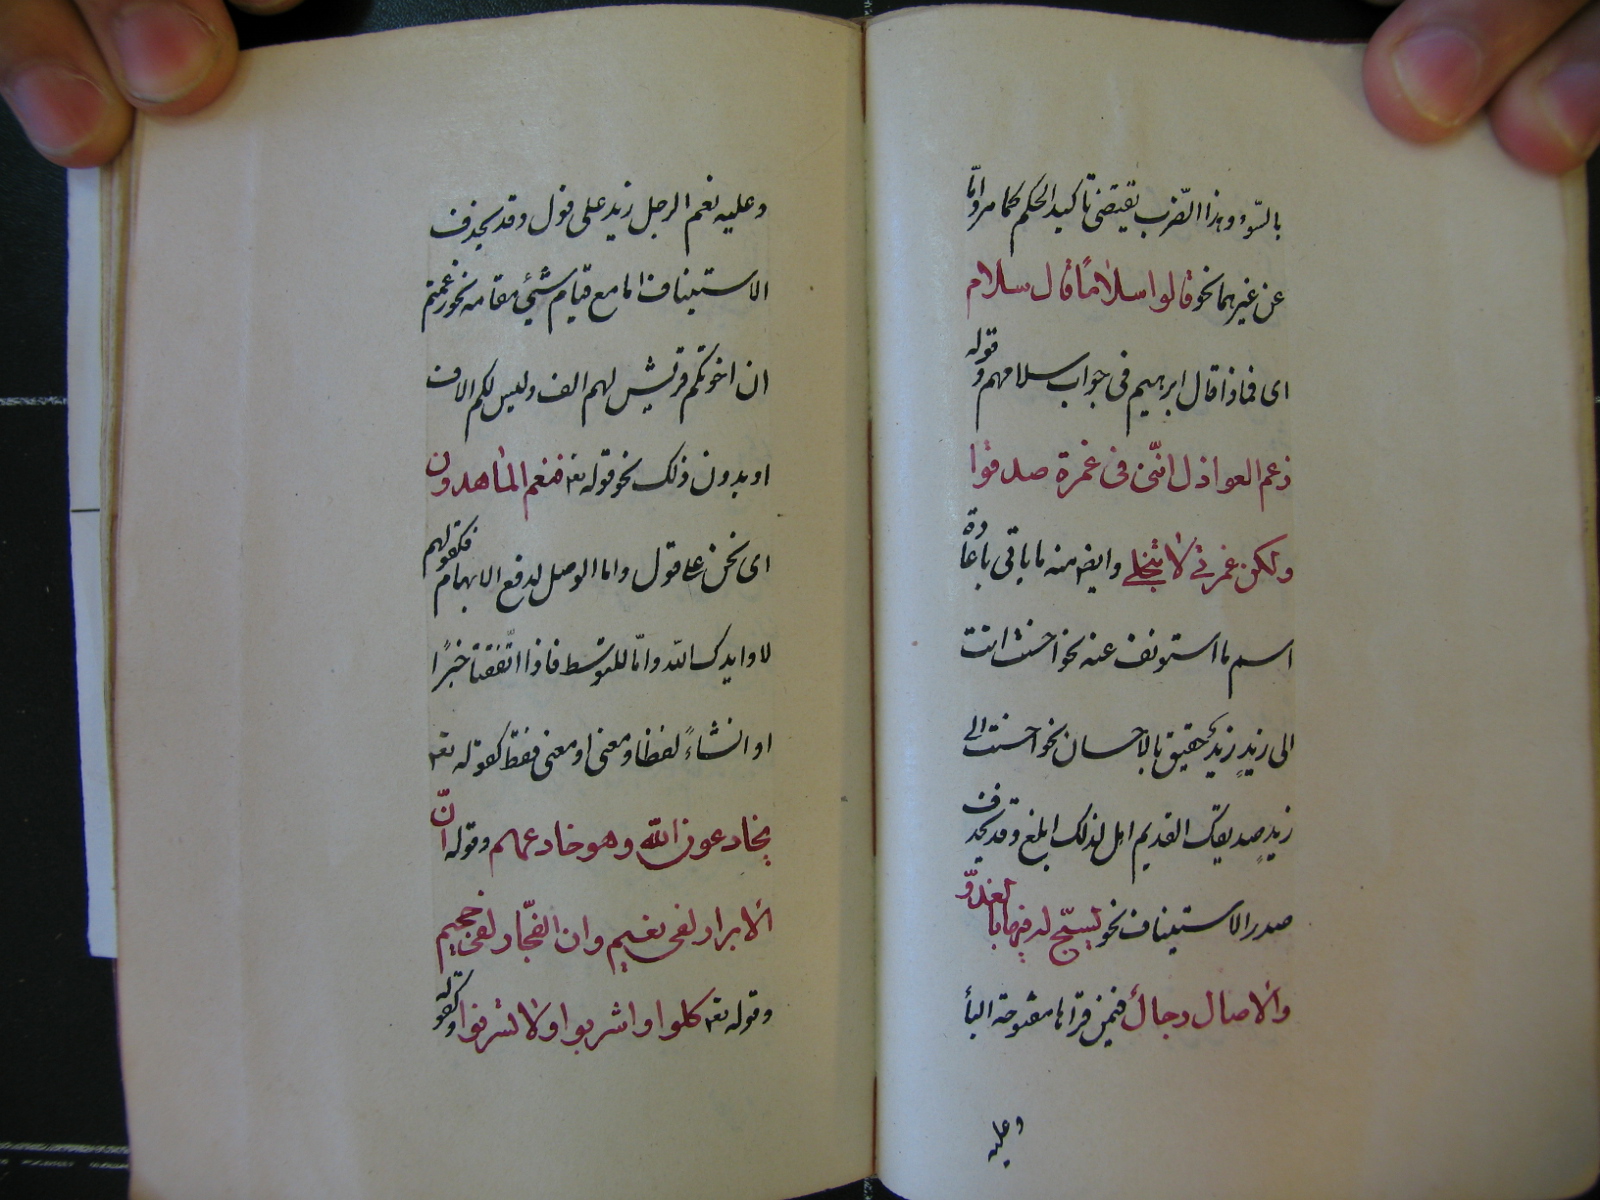 بالسّوء وهذا الضّرب يقتضى تاكيد الحكم كما مر وامّا
عن غيرهما نحو قالوا سلامًا قال سلام
اى فماذا قال ابرهيم فى جواب سلامهم وقوله
زعم العواذل انّنى فى غمرة صدقوا
ولكن غمرتي لا تنجلي وايضا منه ما ياتى باعادة
اسم ما استونف عنه نحو احسنت انت
الى زيدٍ زيد حقيق بالاحسان نحو احسنت الى
زيدٍ صديقك القديم اهل لذلك ابلغ وقد يحذف
صدر الاستيناف نحو يسبّح له فيها بالغدوّ
والاصال رجال فيمن قراها مفتوحة البا
وعليه
وعليه نعم الرجل زيد على قول وقد يحذف
الاستيناف اما مع قيام شيئ مقامه نحو زعمتم
ان اخوتكم قريش لهم الف وليس لكم الاف
او بدون ذلك نحو قوله تعـ فنعم الماهدون
اى نحن على قول واما الوصل لدفع الايهام فكقولهم
لا وايدك اللّه وامّا للتوسّط فاذا اتّفقتا خبرًا
او انشاءً لفظا ومعنى او معنى فقط كقوله تعـ
يخادعون اللّه وهو خادعهم وقوله انّ
الابرار لفى نعيم وان الفجّار لفى جحيم
وقوله تعـ كلوا واشربوا ولا تسرفوا وكقوله